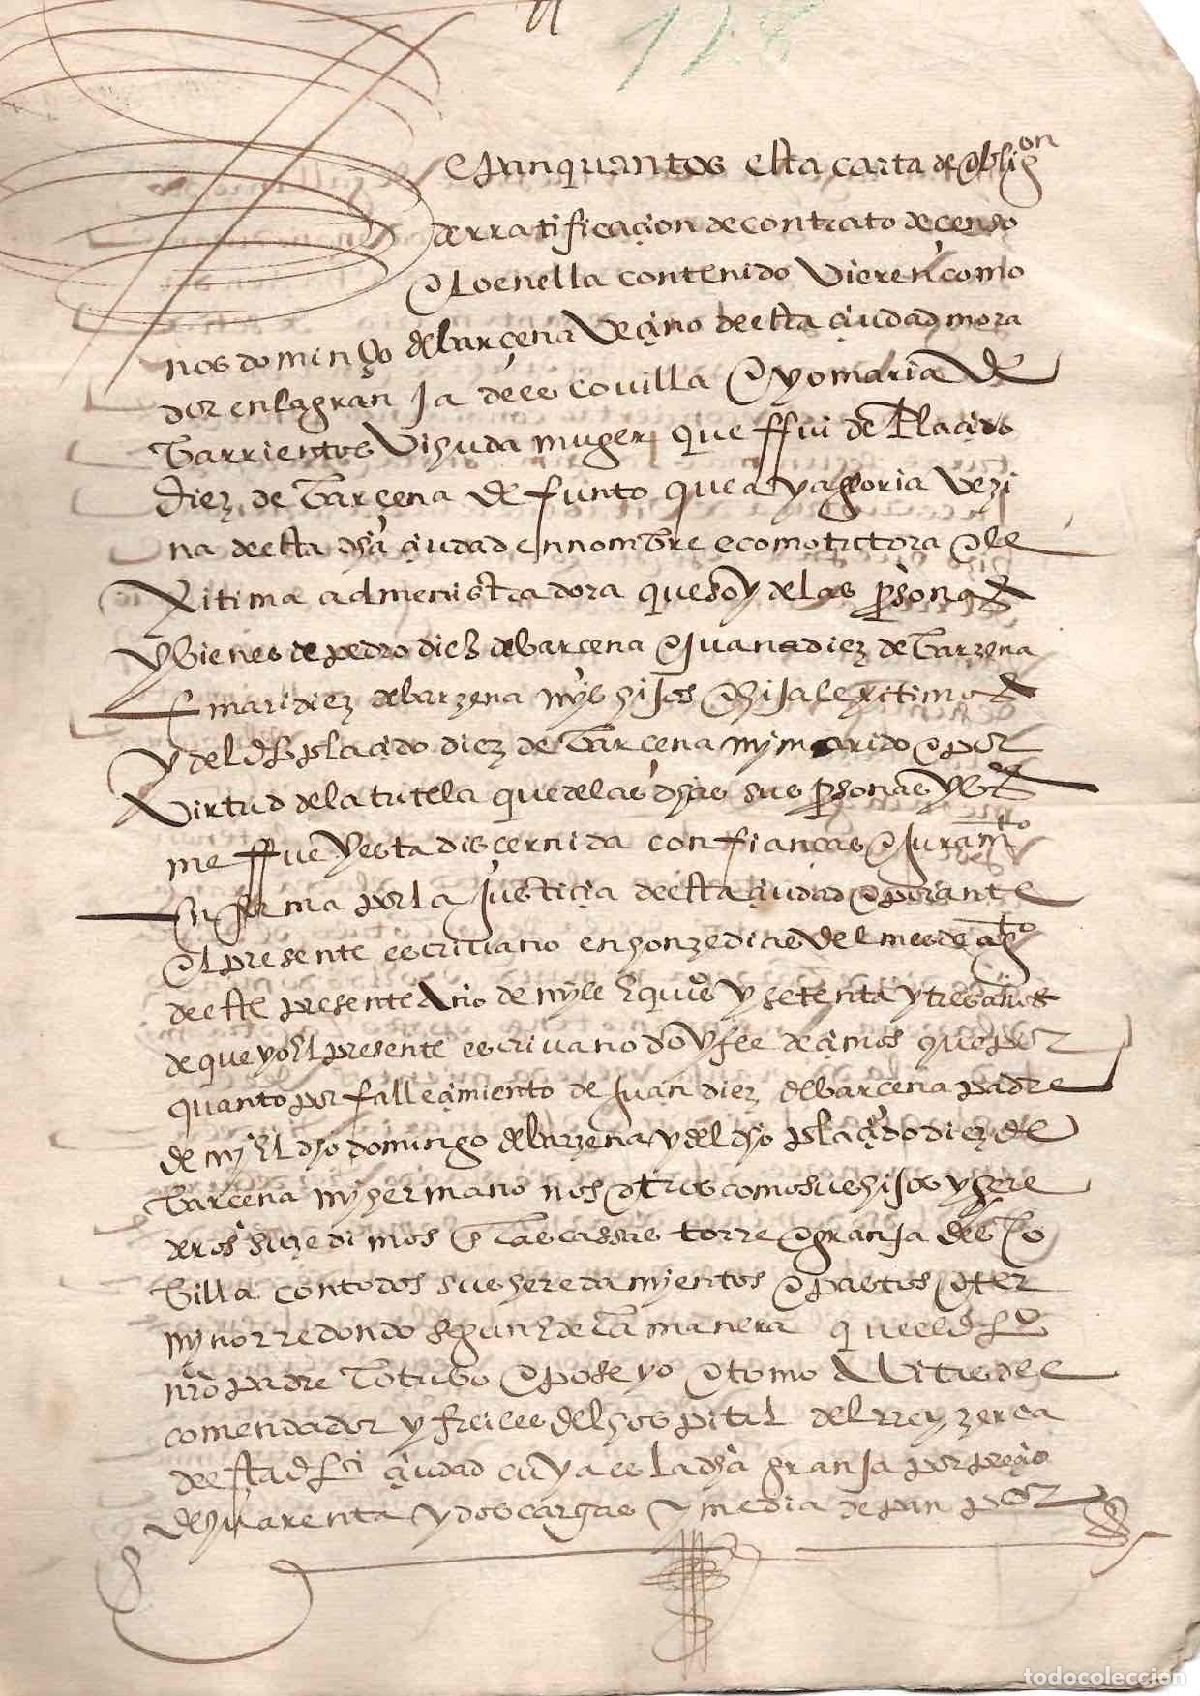 128
Sepan quantos esta carta de oblig.on
de rratificaçion de contrato de censo
e lo en ella contenido vieren como
nos domingo de barçena veçino de esta çiudad mora
dor en la granja de es covilla e yo maria de
barrientos vihuda muger que ffui de plaçido
diez de barçena defunto que aya gloria vezi
na de esta dha çiudad en nombre e como tutora e le
xitima admenistradora que soy de las p'sonas
y bienes de pedro diez de barcena e juana diez de barzena
e mari diez de barzena mys hijos e hija lexitimos
y del dho plaçido diez de barcena my marido e por
virtud de la tutela que de las dhas sus p'sonas y b's
me ffue y esta discernida con fianças e juram.to
en forma por la justiçia de esta çiudad e por ante
el presente escrivano en honze dias del mes de ag.to
de este presente año de myle e quis y setenta y tres años
de que yo el presente escrivano doy fee deçimos que por
quanto por falleçimiento de juan diez de barcena padre
de my el dho domingo de barzena y del dho plaçido diez de
barcena my hermano nos otros como sus hijos y here
deros suçedimos en las casas torre e granja de esco
billa con todos sus heredamyentos e pastos e ter
myno rredondo segun e de la manera que el dho
nro padre lo tubo e poseyo e tomo a vitas del
comendador y freiles del hospital del rrey zerca
de esta dha çiudad cuya es la dha granja por preçio
de quarenta y dos cargas y media de pan por
todocoleccion